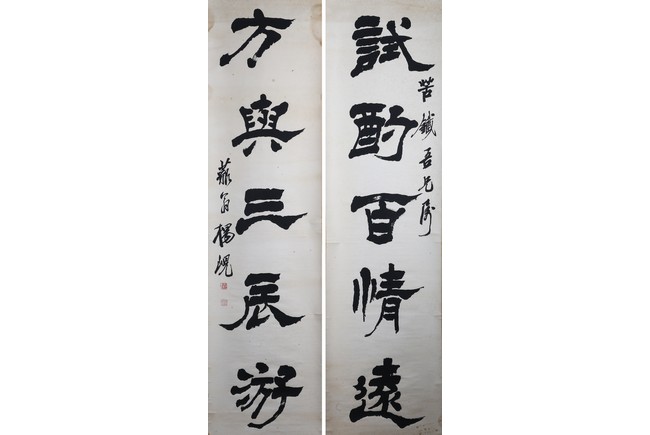 試酌百情遠
苦鐵吾兄屬
方輿三辰游
藐翁楊峴